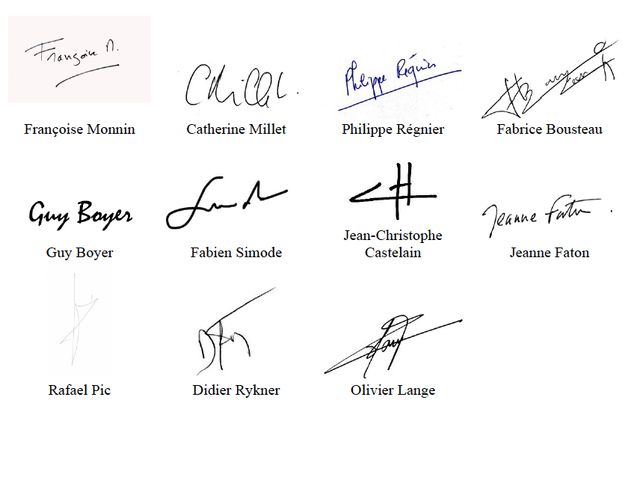 Françoise M.
Philippe Régnier
Françoise Monnin
Catherine Millet
Philippe Régnier
Fabrice Bousteau
Guy Boyer
Jeanne Faton
Guy Boyer
Fabien Simode
Jean-Christophe
Castelain
Jeanne Faton
Rafael Pic
Didier Rykner
Olivier Lange